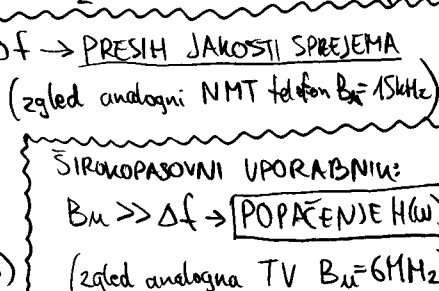 Δf → PRESIH JAKOSTI SPREJEMA
(zgled analogni NMT telefon Bμ=15kHz)
ŠIROKOPASOVNI UPORABNIK:
Bμ >> Δf → POPAČENJE H(ω)
(zgled analogna TV Bμ=6MHz